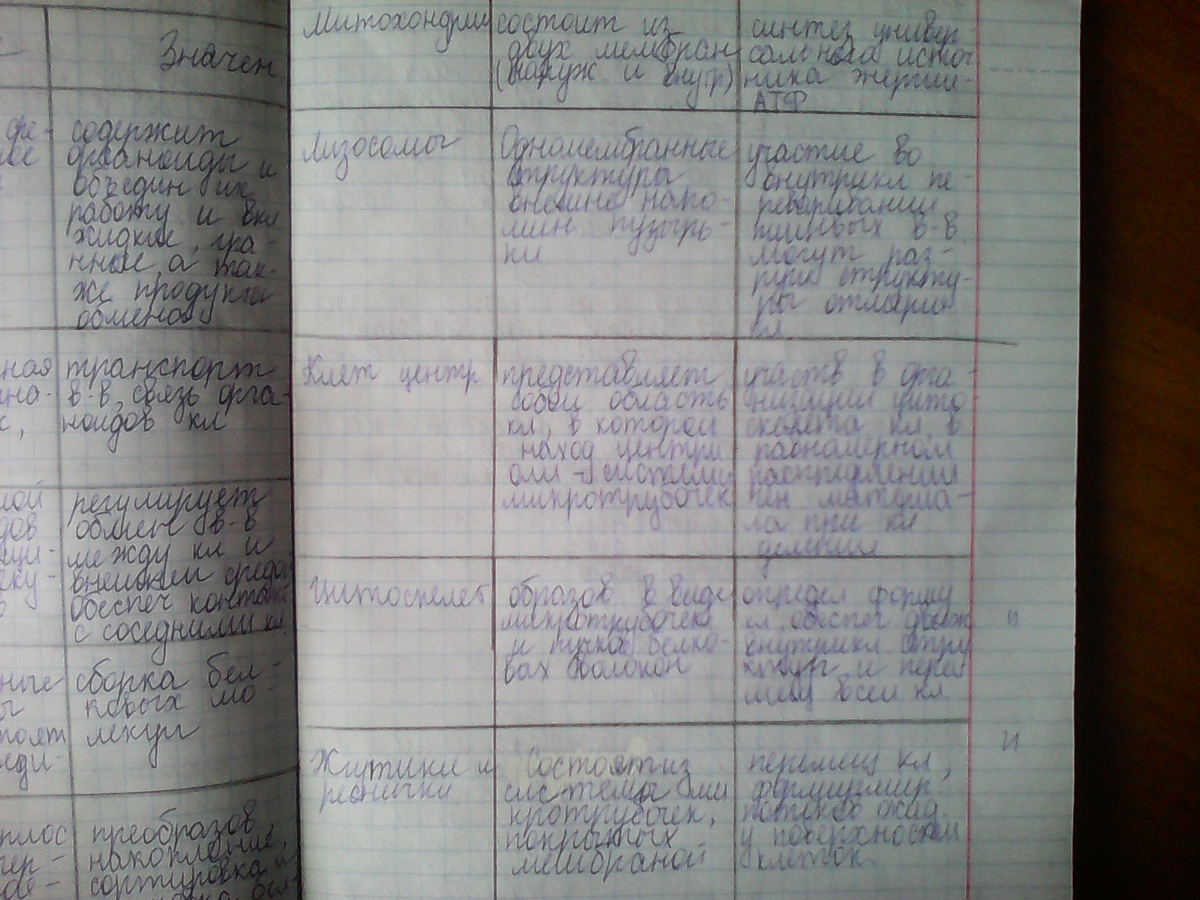 Значен
содержит
органоиды и
объедин их
работу и вкл
жидкие, гра-
нные, а так-
же продукты
обмена
ная транспорт
в-в, связь орга-
ноидов кл
регулирует
обмен в-в
между кл и
внешней средой
обеспеч контакт
с соседними кл.
ные сборка бел-
ы ковых мо-
тоят лекул
еди-
плос преобразов,
накопление,
сортировка и
Митохондрии
состоит из
двух мембран
(наруж и внутр)
синтез универ
сального источ
ника энергии-
АТФ
Лизосомы
Одномембранные
структуры
внешне напо-
мин пузырь-
ки
участие во
внутрикл пе-
реваривании
пищевых в-в.
могут раз-
руш структу-
ры отмерш
кл
Клет центр
представляет
собой область
кл, в которой
наход центри
оли - системы
микротрубочек
участв в орга-
низации цито
скелета кл, в
равномерном
распределении
ген материа-
ла при кл
делении
Цитоскелет
образов в виде
микротрубочек
и пучков белко-
вах волокон
определ форму
кл, обеспеч движ
внутрикл стру
ктур и перем
мещ всей кл
Жгутики и
реснички
Состоят из
системы ми
кротрубочек,
покрытых
мембраной
перемещ кл,
формиуиир.
потоков жид.
у поверхности
клеток.
и
и